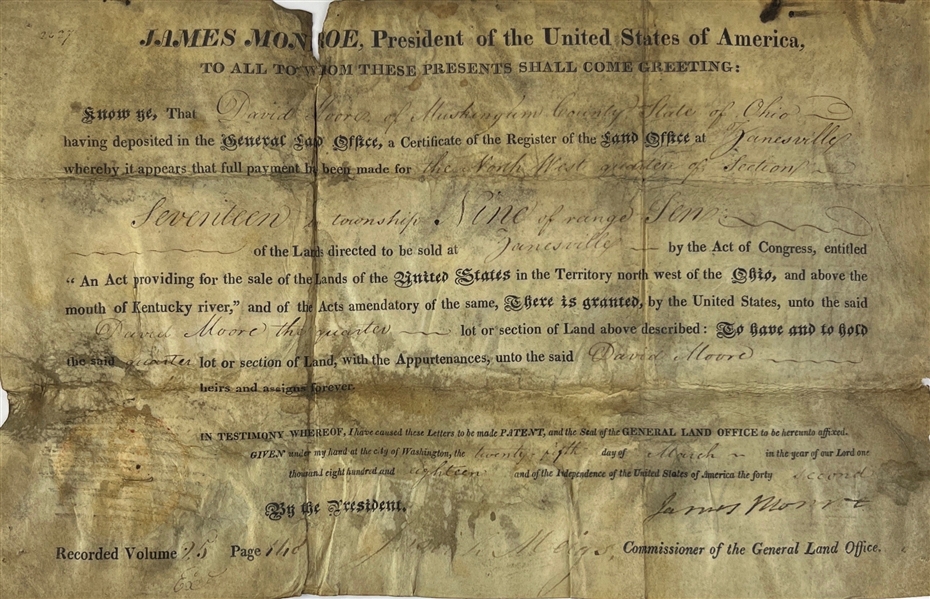 2627
JAMES MONROE, President of the United States of America,
TO ALL TO WHOM THESE PRESENTS SHALL COME GREETING:
Know ye, That David Moore of Muskingum County State of Ohio
having deposited in the General Lad Office, a Certificate of the Register of the Land Office at Zanesville
whereby it appears that full payment h been made for the North West quarter of Section
Seventeen in township Nine of range Ten
of the Lands directed to be sold at Zanesville by the Act of Congress, entitled
"An Act providing for the sale of the Lands of the United States in the Territory north west of the Ohio, and above the
mouth of Kentucky river," and of the Acts amendatory of the same, There is granted, by the United States, unto the said
David Moore the quarter lot or section of Land above described: To have and to hold
the said quarter lot or section of Land, with the Appurtenances, unto the said David Moore
heirs and assigns forever.
IN TESTIMONY WHEREOF, I have caused these Letters to be made PATENT, and the Seal of the GENERAL LAND OFFICE to be hereunto affixed.
GIVEN under my hand at the city of Washington, the twenty fifth day of March in the year of our Lord one
thousand eight hundred and eighteen and of the Independence of the United States of America the forty second
By the President, James Monroe
Recorded Volume 25 Page Josiah Meigs, Commissioner of the General Land Office.
Ex